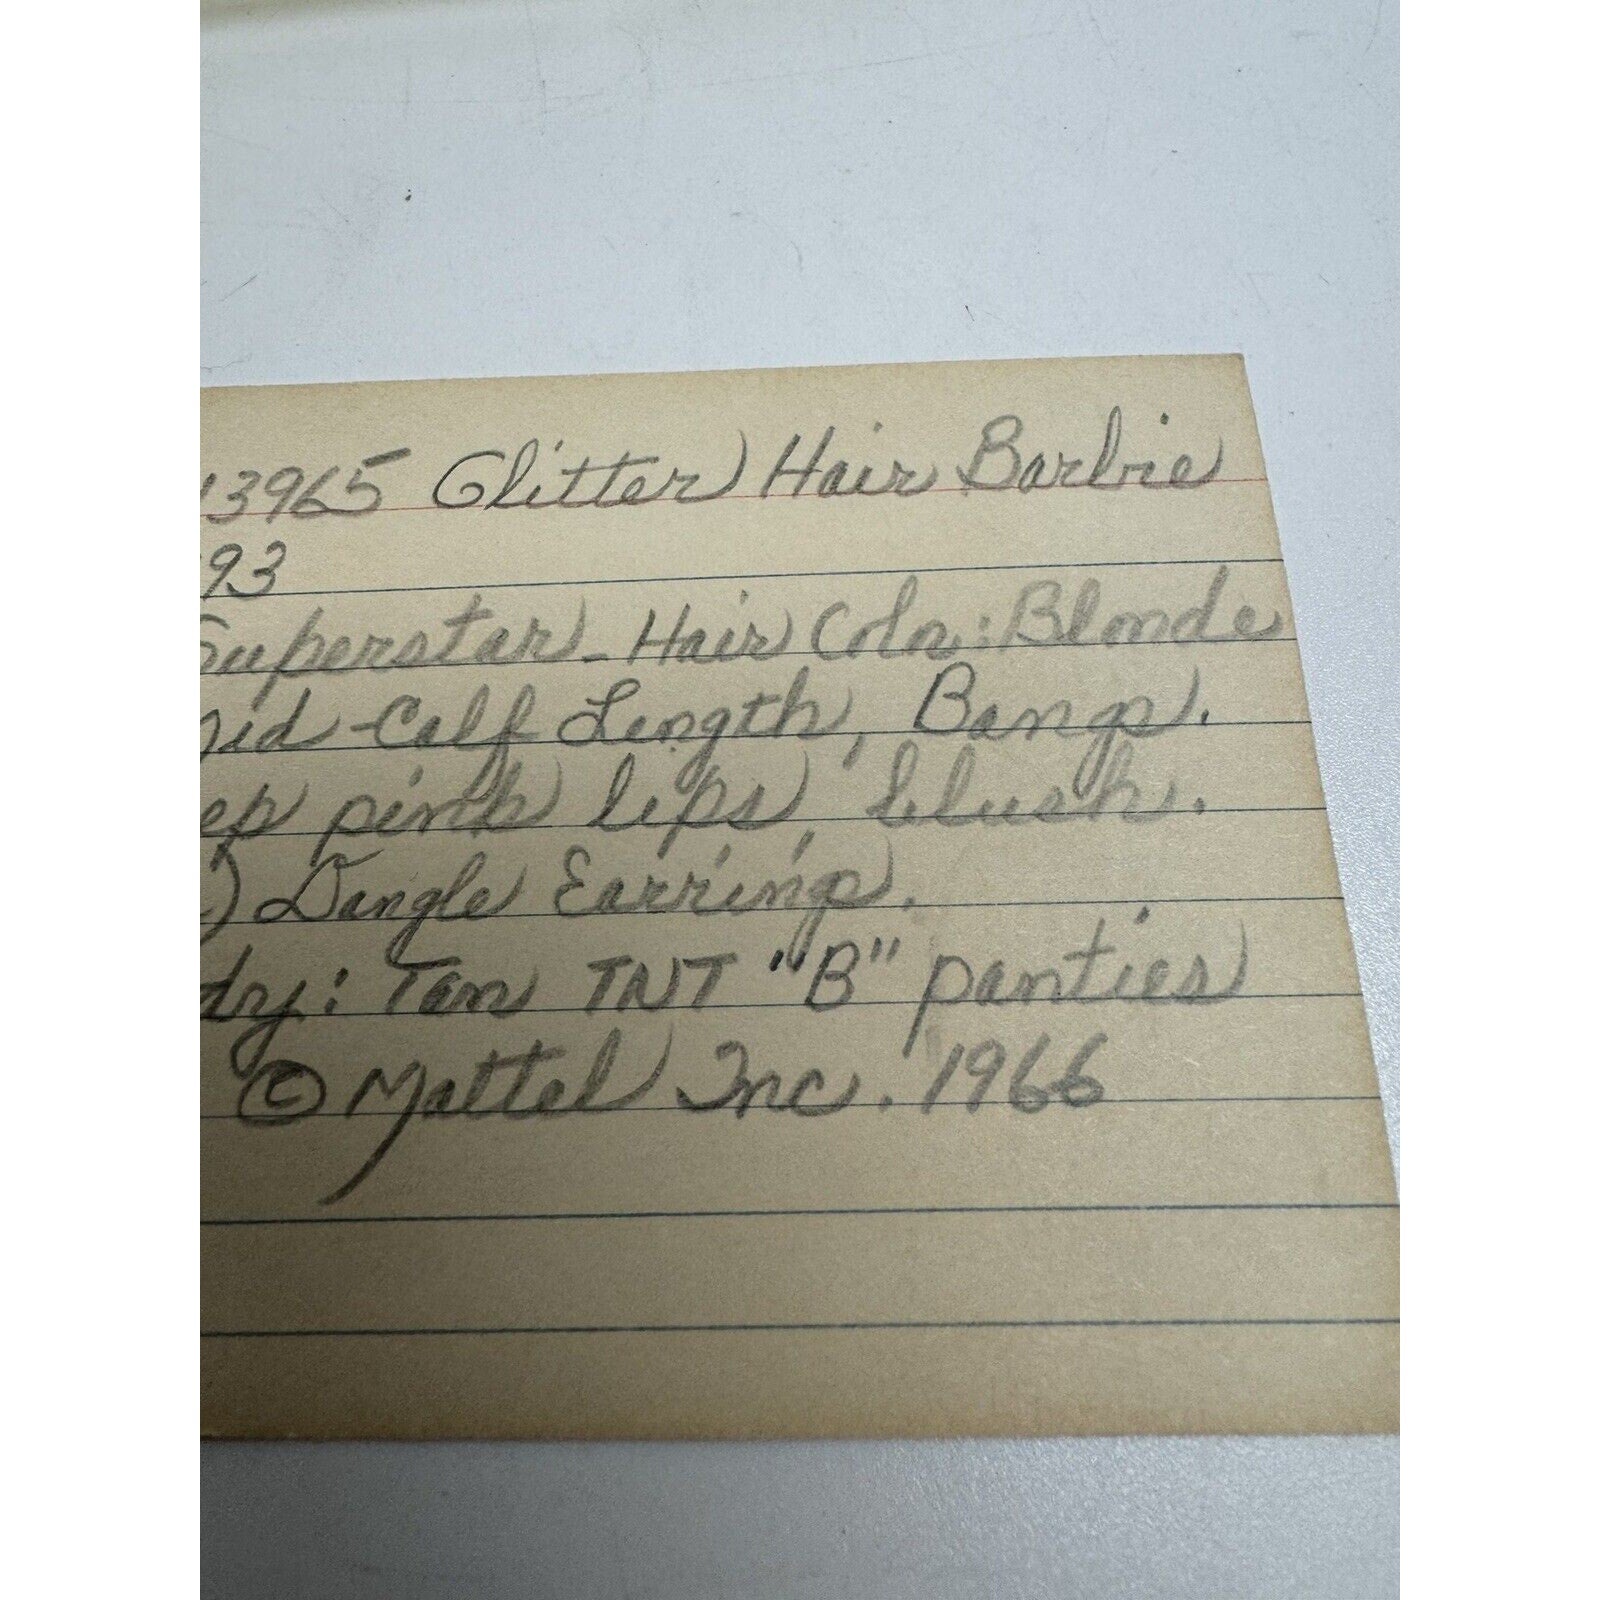 13965 Glitter Hair Barbie
93
Superstar - Hair Color: Blonde
Mid-Calf Length, Bangs.
ep pink lips, blush.
) Dangle Earrings.
dy: Tan TNT "B" panties
© Mattel Inc. 1966